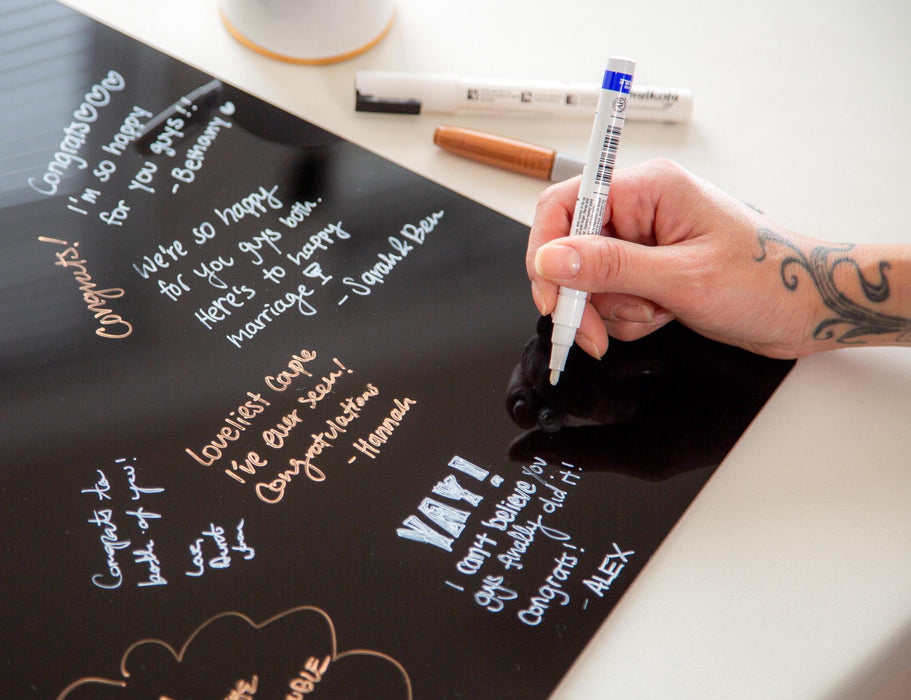 Congrats
I'm so happy
for you guys!!
-Bethany
Congrats!
We're so happy
for you guys both.
Here's to happy
marriage
- Sarah & Ben
Loveliest Couple
I've ever seen!
Congratulations
- Hannah
Congrats to
both of you!
Love,
YAY!
I can't believe you
guys finally did it!
Congrats!
- ALEX